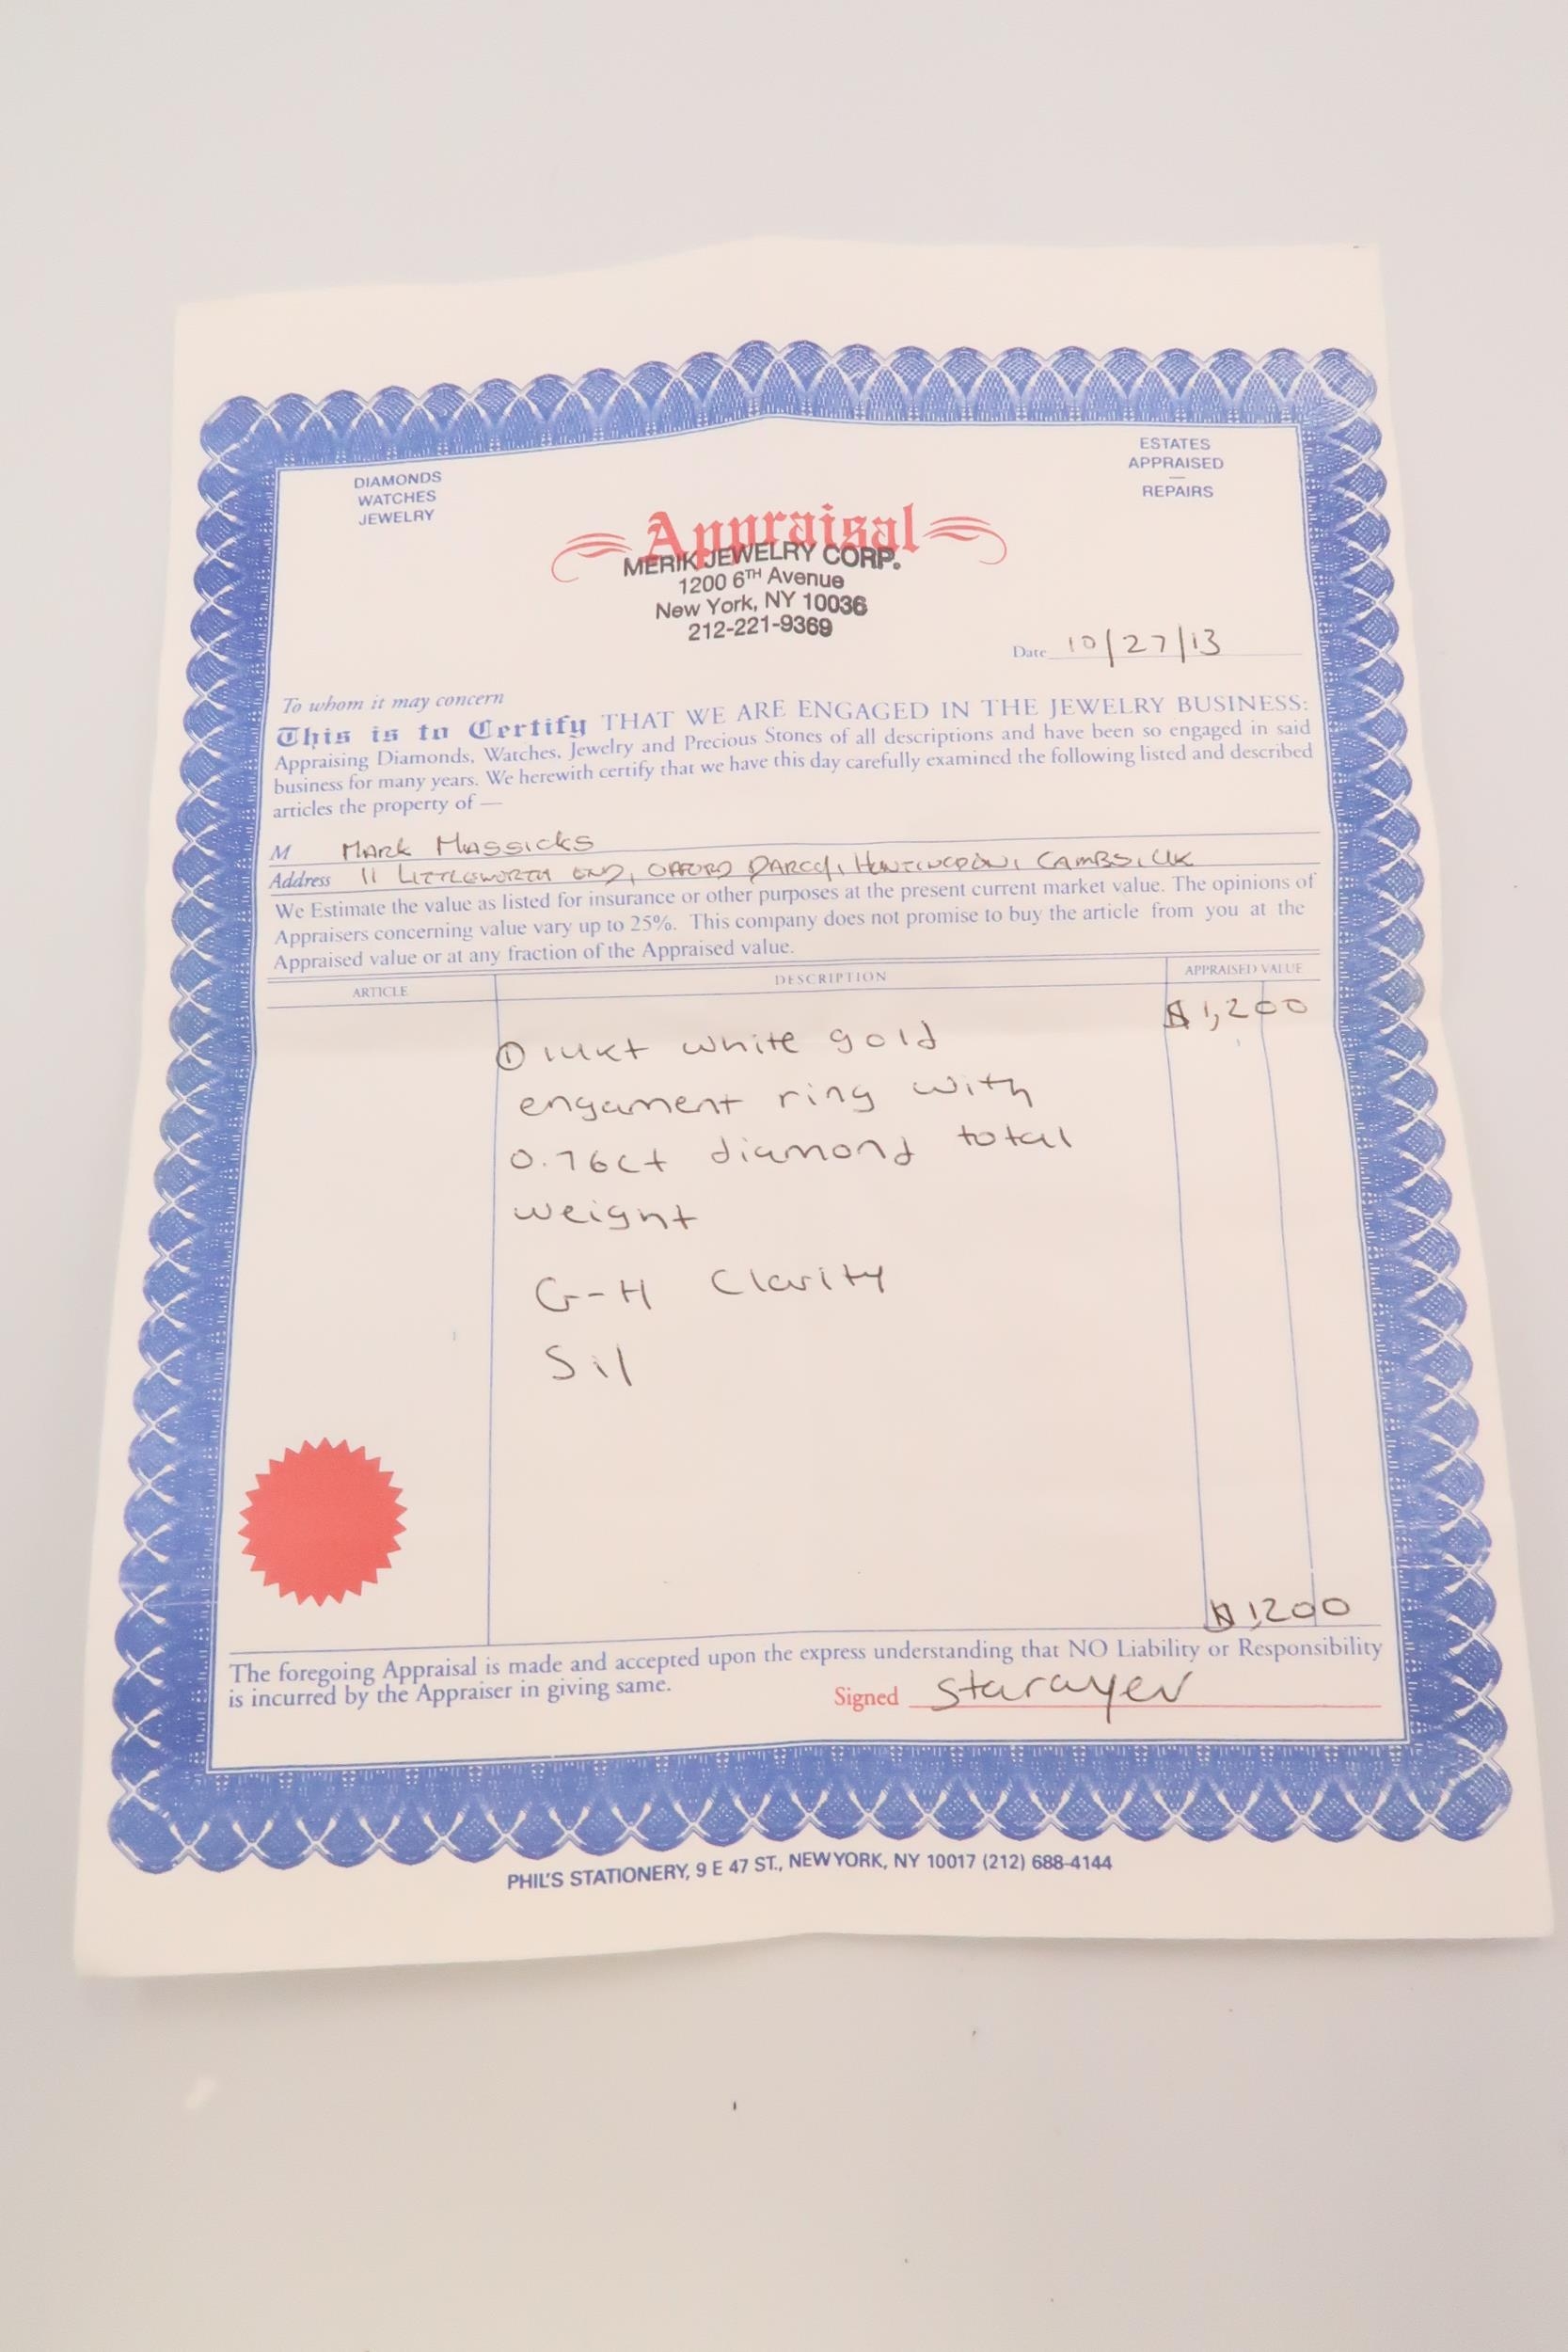 DIAMONDS
WATCHES
JEWELRY
ESTATES
APPRAISED
REPAIRS
Appraisal
MERIK JEWELRY CORP.
1200 6TH Avenue
New York, NY 10036
212-221-9369
Date 10/27/13
To whom it may concern
This is to Certify THAT WE ARE ENGAGED IN THE JEWELRY BUSINESS:
Appraising Diamonds, Watches, Jewelry and Precious Stones of all descriptions and have been so engaged in said
business for many years. We herewith certify that we have this day carefully examined the following listed and described
articles the property of —
M MARK MASSICKS
Address 11 LITTLEWORTH END, OFFORD DARCY, HUNTINGDON, CAMBS, UK
We Estimate the value as listed for insurance or other purposes at the present current market value. The opinions of
Appraisers concerning value vary up to 25%. This company does not promise to buy the article from you at the
Appraised value or at any fraction of the Appraised value.
ARTICLE DESCRIPTION APPRAISED VALUE
① 14kt white gold $1,200
engament ring with
0.76ct diamond total
weight
G-H Clarity
Si1
$1,200
The foregoing Appraisal is made and accepted upon the express understanding that NO Liability or Responsibility
is incurred by the Appraiser in giving same.
Signed
PHIL'S STATIONERY, 9 E 47 ST., NEW YORK, NY 10017 (212) 688-4144